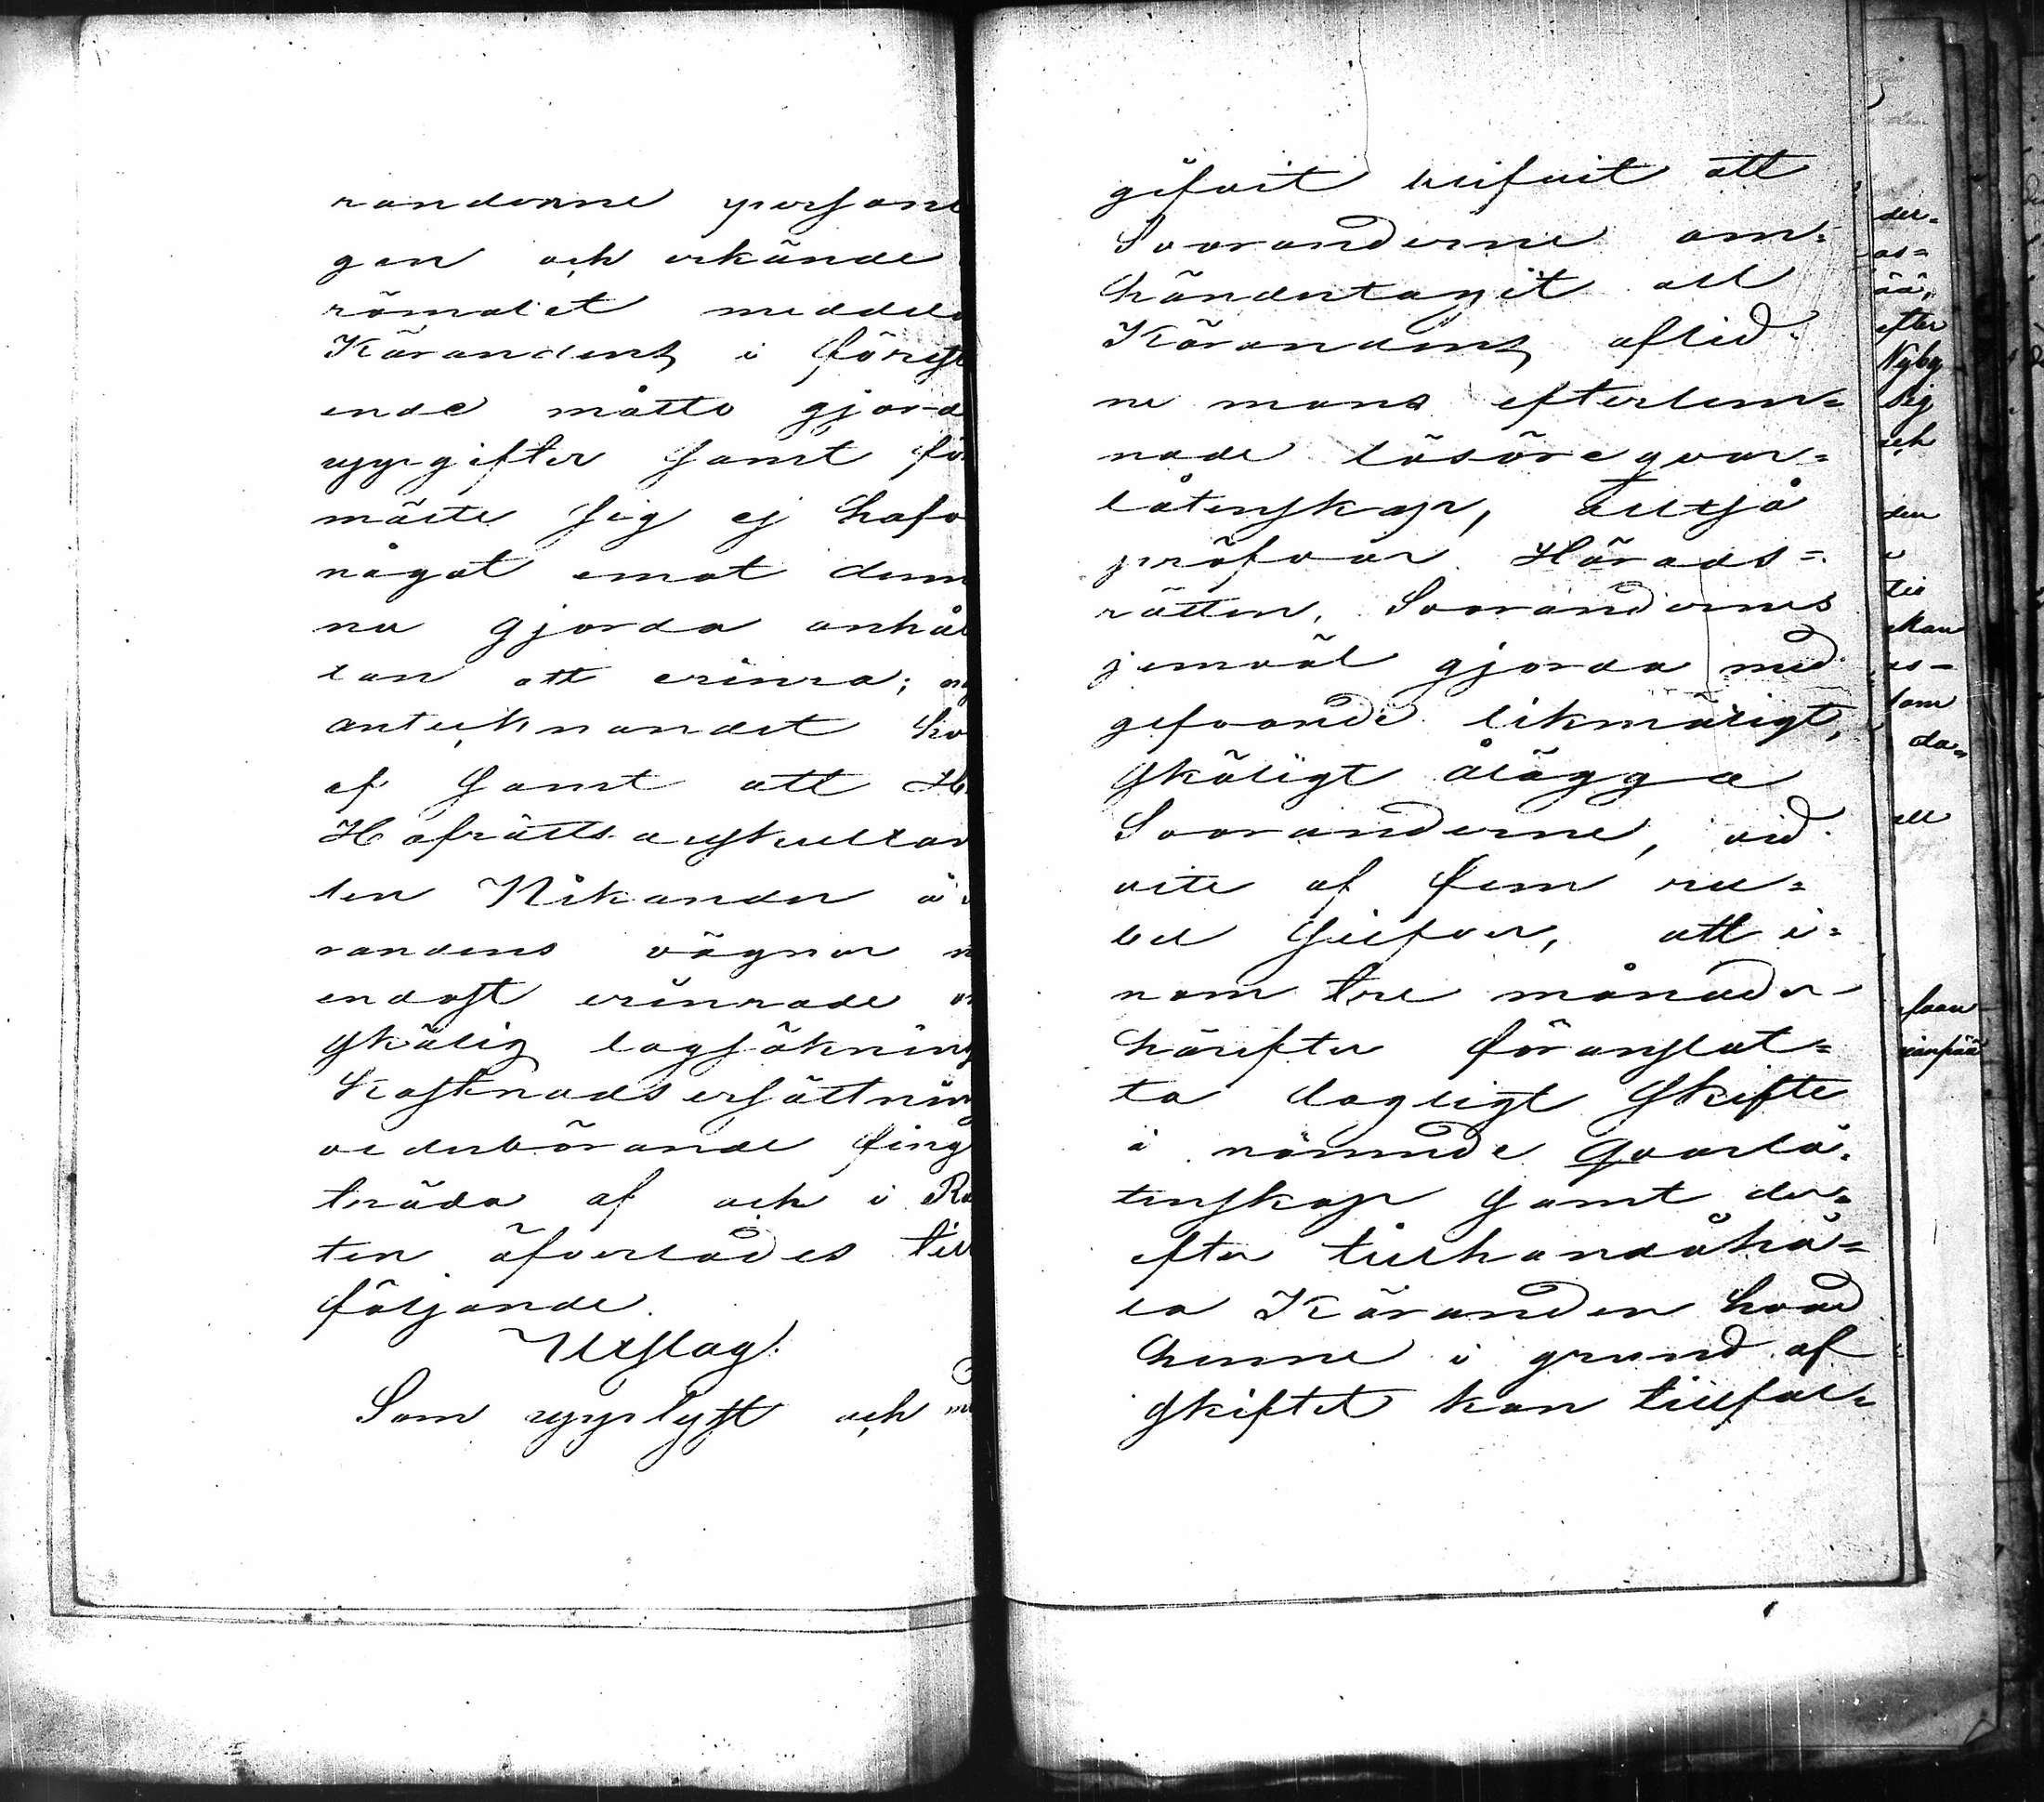 randerne person
gen och erkände
römålet meddela
Kärandens i förest
ende måtto gjord
uppgifter samt för
mälte sig ej hafv
något emot denn
nu gjorda anhål
lan att erinra; o
antecknandet hv
af samt att H
Hofrättsauskultan
ten Nikander å
randens vägnar
endast erinrade o
skälig lagsöknings
kostnadsersättning
vederbörande fing
träda af och i Rä
ten öfverlades till
följande.
Utslag.
Som upplyst och m
gifvit blifvit att
Svaranderne om=
händertagit all
Kärandens aflid=
ne mans efterlem=
nade lösöreqvar=
låtenskap, Alltså
pröfvar Härads=
rätten, Svarandernes
jemväl gjorda med=
gefvande likmätigt,
skäligt ålägga
Svaranderne, vid
vite af fem ru=
bel silfver, att i=
nom tre månader
härefter föranstal=
ta lagligt skifte
i nämnde qvarlå=
tenskap samt der=
efter tillhandahål=
la Käranden hvad
henne i grund af
skiftet kan tillfal=
der=
as=
ää,
efter
Nyby
sig
och
den
a
till
kan
as=
som
da=
all